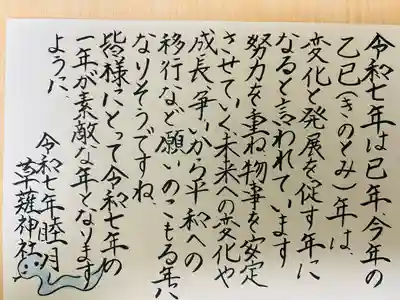 令和七年は巳年、今年の
乙巳(きのとみ)年は、
変化と発展を促す年に
なると言われています
努力を重ね物事を安定
させていく未来への変化や
成長、争いから平和への
移行など願いのこもる年に
なりそうですね、
皆様にとって令和七年の
一年が素敵な年となります
ように、
令和七年睦月
草薙神社